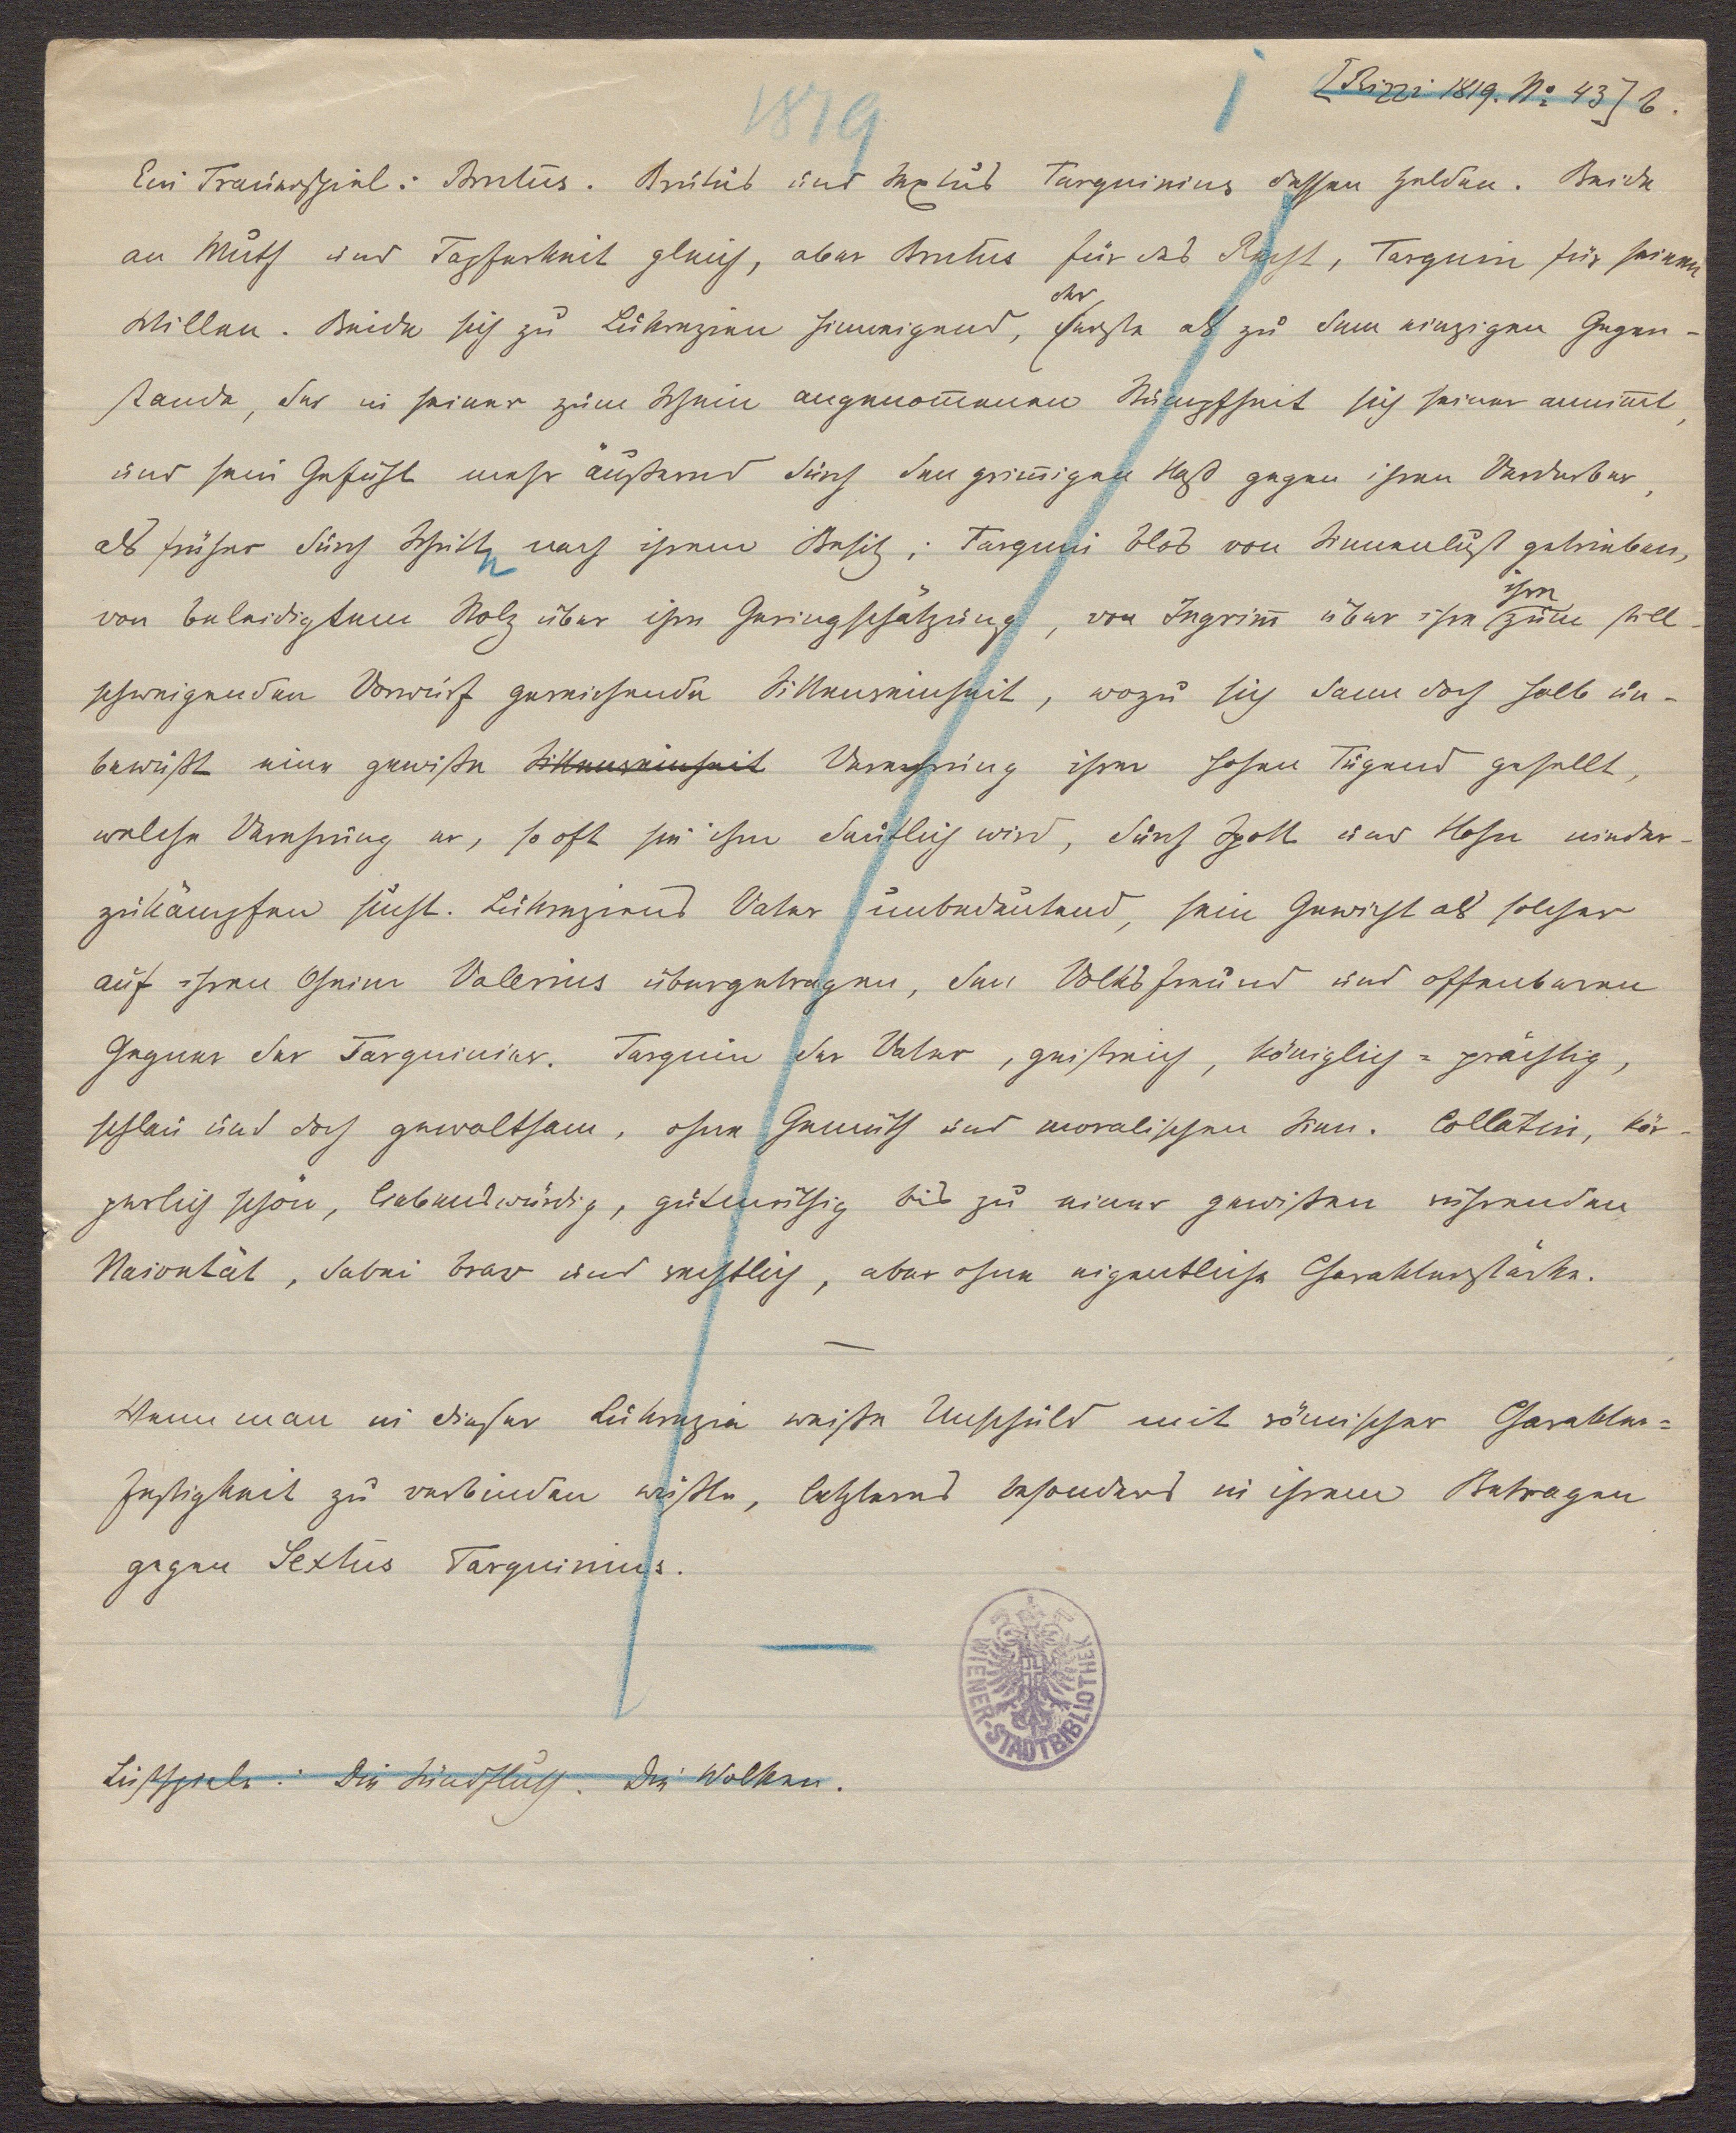 1819
[Rizzi 1819. No 43] b.
Ein Trauerspiel: Brutus. Brutus und Sextus Tarquinius dessen Helden. Beide
an Muth und Tapferkeit gleich, aber Brutus für das Recht, Tarquin für seinen
Willen. Beide sich zu Lukrezien hinneigend, der
erste als zu dem einzigen Gegen-
stande, der in seiner zum Schein angenom̄enen Stumpfheit sich seiner annim̄t,
und sein Gefühl mehr äußernd durch den grim̄igen Haß gegen ihren Verderber,
als früher durch Schritte nach ihrem Besitz; Tarquin blos von Sinnenlust getrieben,
von beleidigtem Stolz über ihre Geringschätzung, von Ingrim̄ über ihre ihm zum still-
schweigenden Vorwurf gereichende Sittenreinheit, wozu sich dann doch halb un-
bewußt eine gewiße Sittenreinheit Verehrung ihrer hohen Tugend gesellt,
welche Verehrung er, so oft sie ihm deutlich wird, durch Spott und Hohn nieder-
zukämpfen sucht. Lukreziens Vater unbedeutend, sein Gewicht als solcher
auf ihren Oheim Valerius übergetragen, den Volksfreund und offenbaren
Gegner der Tarquinier. Tarquin der Vater, geistreich, königlich=prächtig,
schlau und doch gewaltsam, ohne Gemüth und moralischen Sinn. Collatin, kör-
perlich schön, liebenswürdig, gutmüthig bis zu einer gewißen rührenden
Naivetät, dabei brav und rechtlich, aber ohne eigentliche Charakterstärke.
—
Wenn man in dieser Lukrezia weiße Unschuld mit römischer Charakter=
festigkeit zu verbinden wüßte, letzteres besonders in ihrem Betragen
gegen Sextus Tarquinius.
WIENER-STADTBIBLIOTHEK
Lustspiele: Die Sündfluth. Die Wolken.